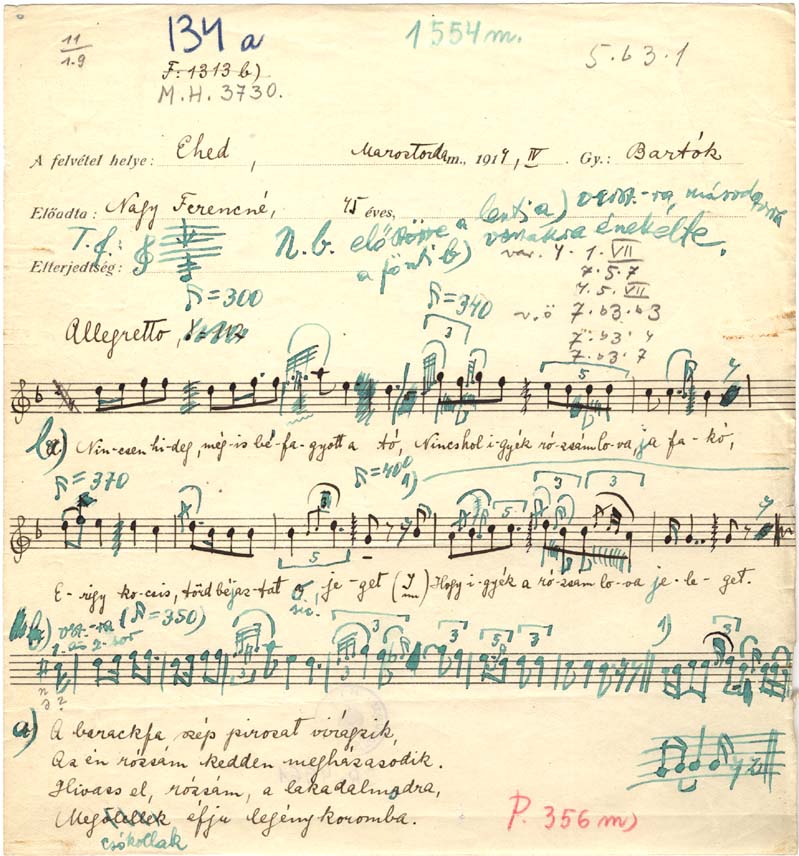 11
1.9
134 a
1554 m.
5. b3. 1
F. 1313 b)
M.H. 3730.
A felvétel helye: Ehed, Marostorda m., 1914, IV. Gy.: Bartók
Előadta: Nagy Ferencné, 45 éves,
Elterjedtség:
T. f.:
N.b. előszörre a lenti a) versz.-ra, másodszorra
a fönti b) énekelte.
var. 4. 1. VII
7. 5. 7
4. 5. VII
v.ö 7. b3. b3
7. b3. 4
7. b3. 7
= 300
= 340
Allegretto,
3
5
b) Nin-csen hi-deg, még-is bé-fa-gyott a tó, Nincs hol i-gyék ró-zsám lo-va, ja fa-kó,
= 370
= 400
1)
3
5
3 3
5
E-rigy ko-csis, törd bé jaz-tat jé-get Hogy i-gyék a ró-zsám lo-va je-le-get.
sic.
b) vsz.-ra (= 350)
1. és 2. sor
3
3
3
5
3
1)
3
a) A barackfa szép pirosat virágzik,
Az én rózsám kedden megházasodik.
Hivass el, rózsám, a lakadalmodra,
Meg éfju legény koromba.
csókollak
P. 356 m)